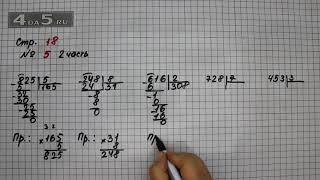 4DA5.RU
Стр. 18
№ 5 2 часть
825 | 5
5 | 165
32
30
25
25
0
248 | 8
24 | 31
8
8
0
616 | 2
6 | 308
1
0
16
16
0
728 | 7
453 | 3
Пр.: × 165
5
825
Пр.: × 31
8
248
Пр